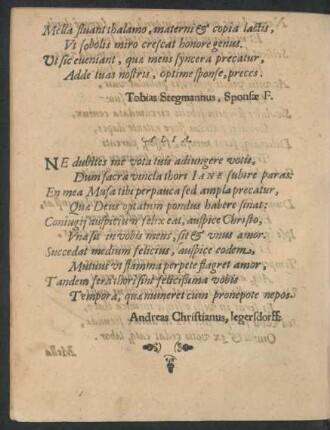 Mella fluant thalamo, materni & copia lactis,
Vt sobolis miro crescat honore genus.
Vt sic eveniant, quæ mens syncera precatur,
Adde tuas nostris, optime sponse, preces.
Tobias Stegmannus, Sponsæ F.
ALIA.
NE dubites me vota tuis adiungere votis,
Dum sacra vincla thori IANE subire paras:
En mea Musa tibi perpauca sed ampla precatur,
Quæ Deus optatum pondus habere sinat:
Conjugij auspicium felix eat, auspice Christo,
Vna sit in vobis mens, sit & vnus amor.
Succedat medium felicius, auspice eodem,
Mutuus vt flamma perpete flagret amor,
Tandem sex thori sint felicissima vobis
Tempora, quæ numeret cum pronepote nepos.
Andreas Christianus, Iegersdorff.
Mella